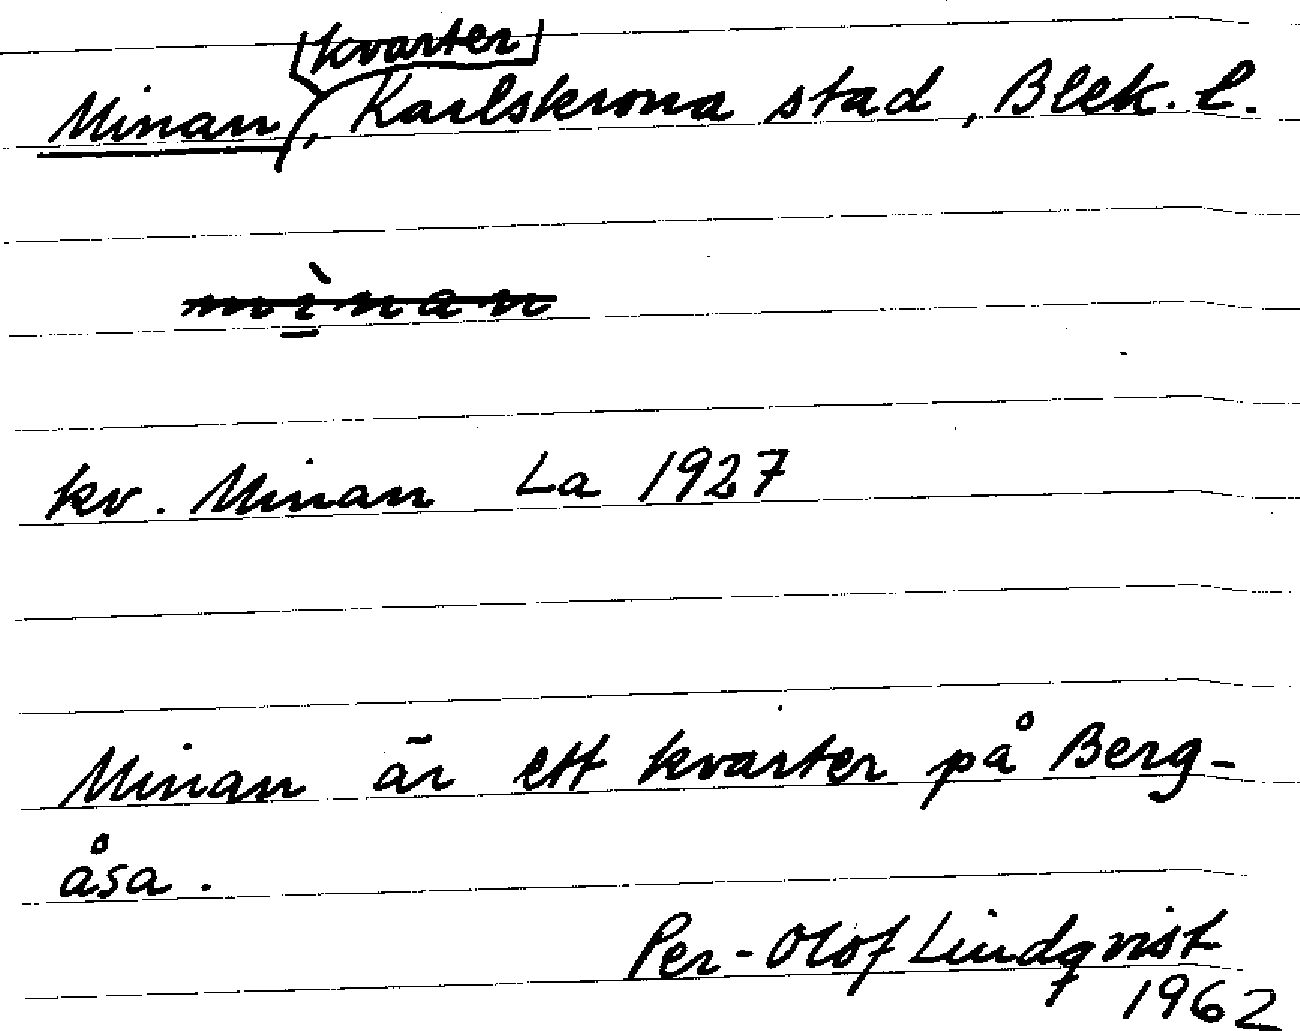 Minan, [kvarter] Karlskrona stad, Blek. l.
mìnan
kv. Minan La 1927
Minan är ett kvarter på Berg-
åsa.
Per-Olof Lindqvist
1962